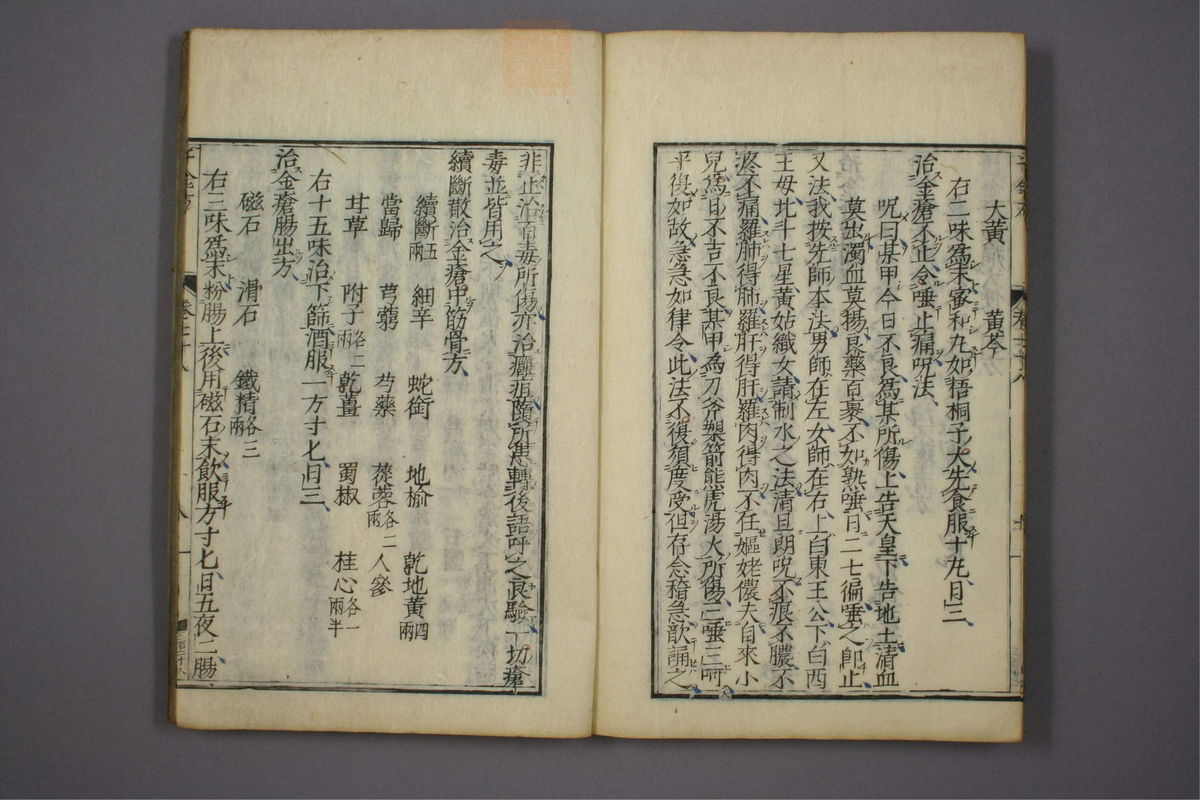 大黃 黃芩
右二味爲末蜜和丸如梧桐子大先食服十丸日三
治金瘡不止令唾止痛呪法
呪曰某甲今日不良爲某所傷上告天皇下告地土清血
莫出濁血莫揚良藥百裹不如熟唾日二七徧唾之卽止
又法我按先師本法男師在左女師在右上白東王公下白西
王母北斗七星黃姑織女請制水之法清旦朗呪不痕不膿不
疼不痛羅肺得肺羅肝得肝羅肉得肉不在嫗姥儂夫自來小
兒爲日不吉不良某甲爲刀斧槊箭熊虎湯火所傷三唾三呵
平復如故急急如律令此法不復須度受但存念稽急歆誦之
非止治百毒所傷亦治癰疽隨所患轉後語呼之良驗一切瘡
毒並皆用之
續斷散治金瘡中筋骨方
續斷五兩 細辛 蛇銜 地榆 乾地黃四兩
當歸 芎藭 芍藥 蓯蓉各三兩 人參
甘草 附子各二兩 乾薑 蜀椒 桂心各一兩半
右十五味治下篩酒服一方寸匕日三
治金瘡腸出方
磁石 滑石 鐵精各三兩
右三味爲末粉腸上後用磁石末飲服方寸匕日五夜二腸